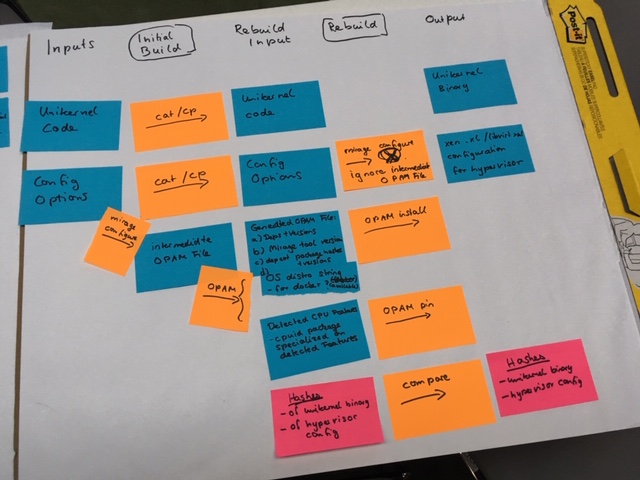 Inputs
Initial
Build
Rebuild
Input
Rebuild
Output
Post-it
Unikernel
Code
cat/cp
Unikernel
Code
Unikernel
Binary
Config
Options
cat/cp
Config
Options
mirage configure
ignore intermediate
OPAM File
xen .xl/libvirt.xml
configuration
for hypervisor
mirage
configure
intermediate
OPAM File
OPAM
Generated OPAM File:
a) Deps + versions
b) Mirage tool version
c) depext package names
+ versions
d)
OS distro string
- for docker
OPAM install
Detected CPU Features
- cpuid package
specialized on
detected features
OPAM pin
Hashes
- of unikernel binary
- of hypervisor
config
compare
Hashes
- unikernel binary
- hypervisor config